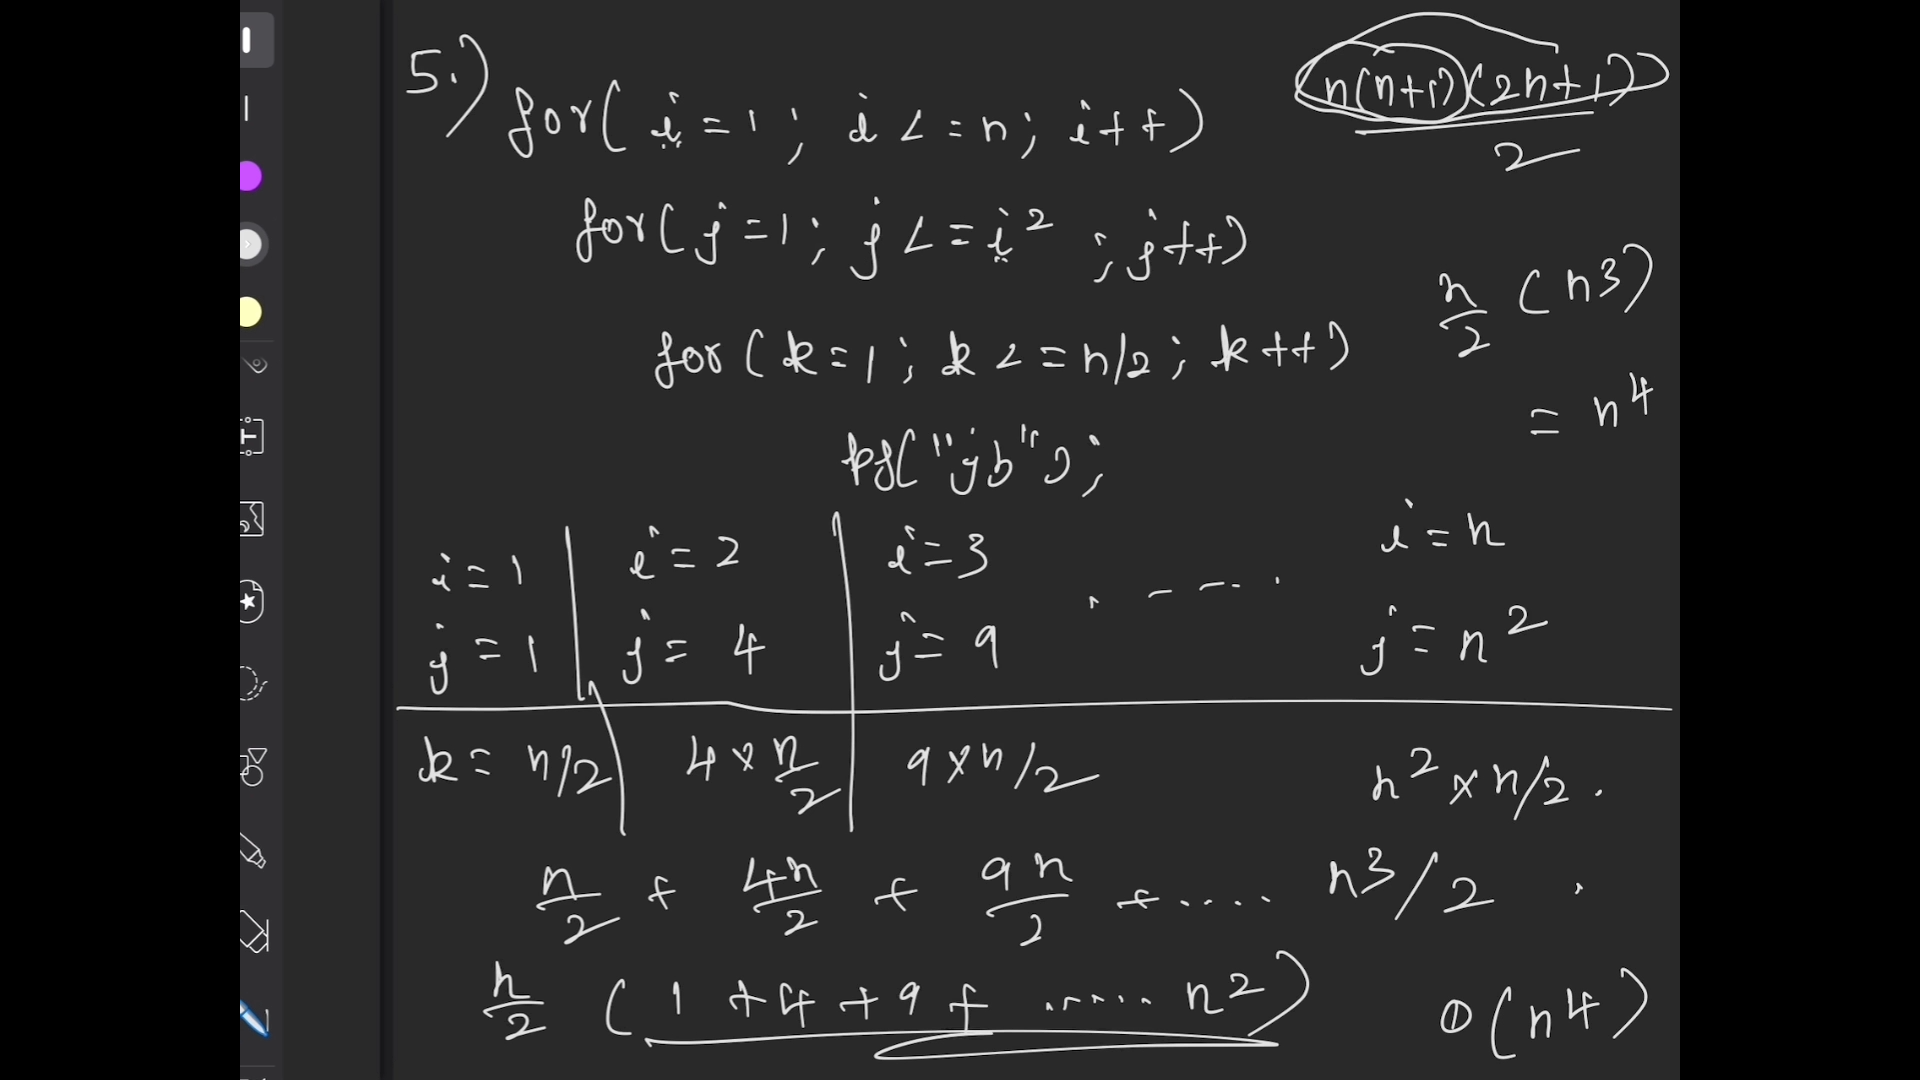 5.) for( i=1; i<=n; i++)
for(j=1; j<=i²; j++)
for(k=1; k<=n/2; k++)
pf("gb");
n(n+1)(2n+1)) / 2
n/2 (n3)
= n4
i=1 | i=2 | i=3 . - - - . i=n
j=1 | j=4 | j=9 j=n²
k= n/2 | 4×n/2 | 9×n/2 n²×n/2.
n/2 + 4n/2 + 9n/2 + .... n3/2 .
n/2 ( 1 +4 +9 + ...... n²) O(n4)